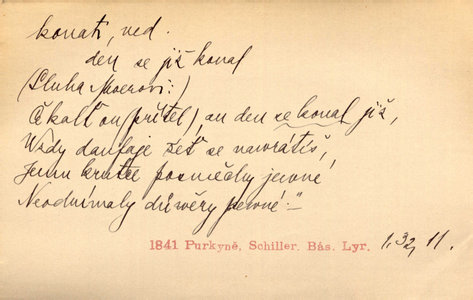 konati, ned.
den se již konal
(Sluha Moerovi:)
Čekalť on (přítel), an den se konal již,
Wždy daufaje žeť se nawrátíš,
Jemu kruté posměchy jewné
Neodnímaly důwěry pewné:"—
1841 Purkyně, Schiller. Bás. Lyr. 1, 32, 11.